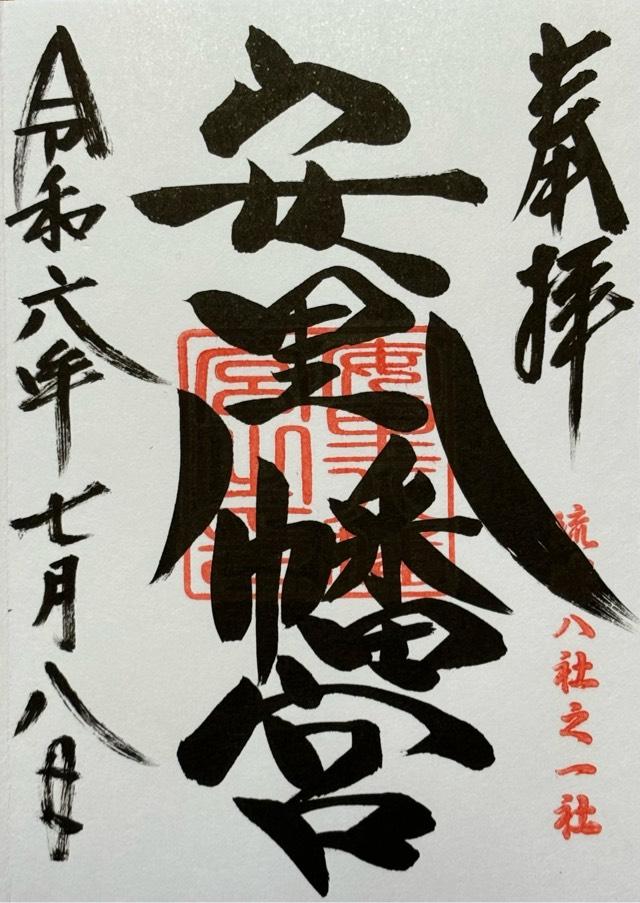 奉拝
八社之一社
安里八幡宮
令和六年七月八日